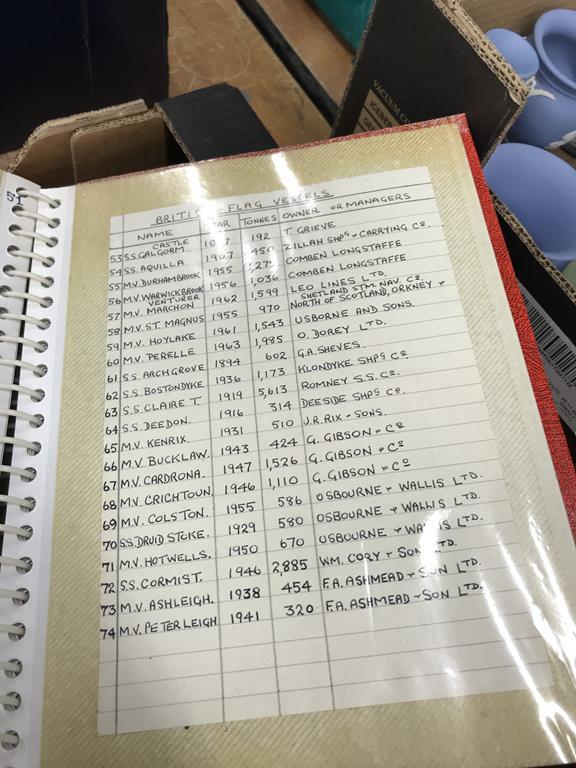 51
VACUUM CO
ICEBER
BRITI FLAG VESSELS
NAME AR TONNES OWNER OR MANAGERS
CASTLE
53 S.S. GALGORM 192 T GRIEVE
54 S.S. AQUILLA 1907 450 ZILLAH SHPG & CARRYING CO.
55 M.V. DURHAMBROOK 1955 COMBEN LONGSTAFFE
56 M.V. WARWICKBROOK 1956 1,036 COMBEN LONGSTAFFE
VENTURER
57 M.V. MARCHON 1962 1,599 LEO LINES LTD.
SHETLAND STM. NAV. CO.
58 M.V. ST. MAGNUS 1955 970 NORTH OF SCOTLAND, ORKNEY &
59 M.V. HOYLAKE 1961 1,543 USBORNE AND SONS.
60 M.V. PERELLE 1963 1,985 O. DOREY LTD.
61 S.S. ARCHGROVE 1894 602 G.A. SHEVES.
62 S.S. BOSTONDYKE 1936 1,173 KLONDYKE SHPG CO
63 S.S. CLAIRE T. 1919 5,613 ROMNEY S.S. CO.
64 S.S. DEEDON. 1916 314 DEESIDE SHPG CO.
65 M.V. KENRIX. 1931 510 J.R. RIX & SONS.
66 M.V. BUCKLAW. 1943 424 G. GIBSON & CO
67 M.V. CARDRONA. 1947 1,526 G. GIBSON & CO
68 M.V. CRICHTOUN. 1946 1,110 G. GIBSON & CO
69 M.V. COLSTON. 1955 586 OSBOURNE & WALLIS LTD.
70 S.S. DRUID STOKE. 1929 580 OSBOURNE & WALLIS LTD.
71 M.V. HOTWELLS. 1950 670 OSBOURNE & WALLIS LTD.
72 S.S. CORMIST. 1946 2,885 WM. CORY & SON LTD.
73 M.V. ASHLEIGH. 1938 454 F.A. ASHMEAD & SON LTD.
74 M.V. PETER LEIGH 1941 320 F.A. ASHMEAD & SON LTD.